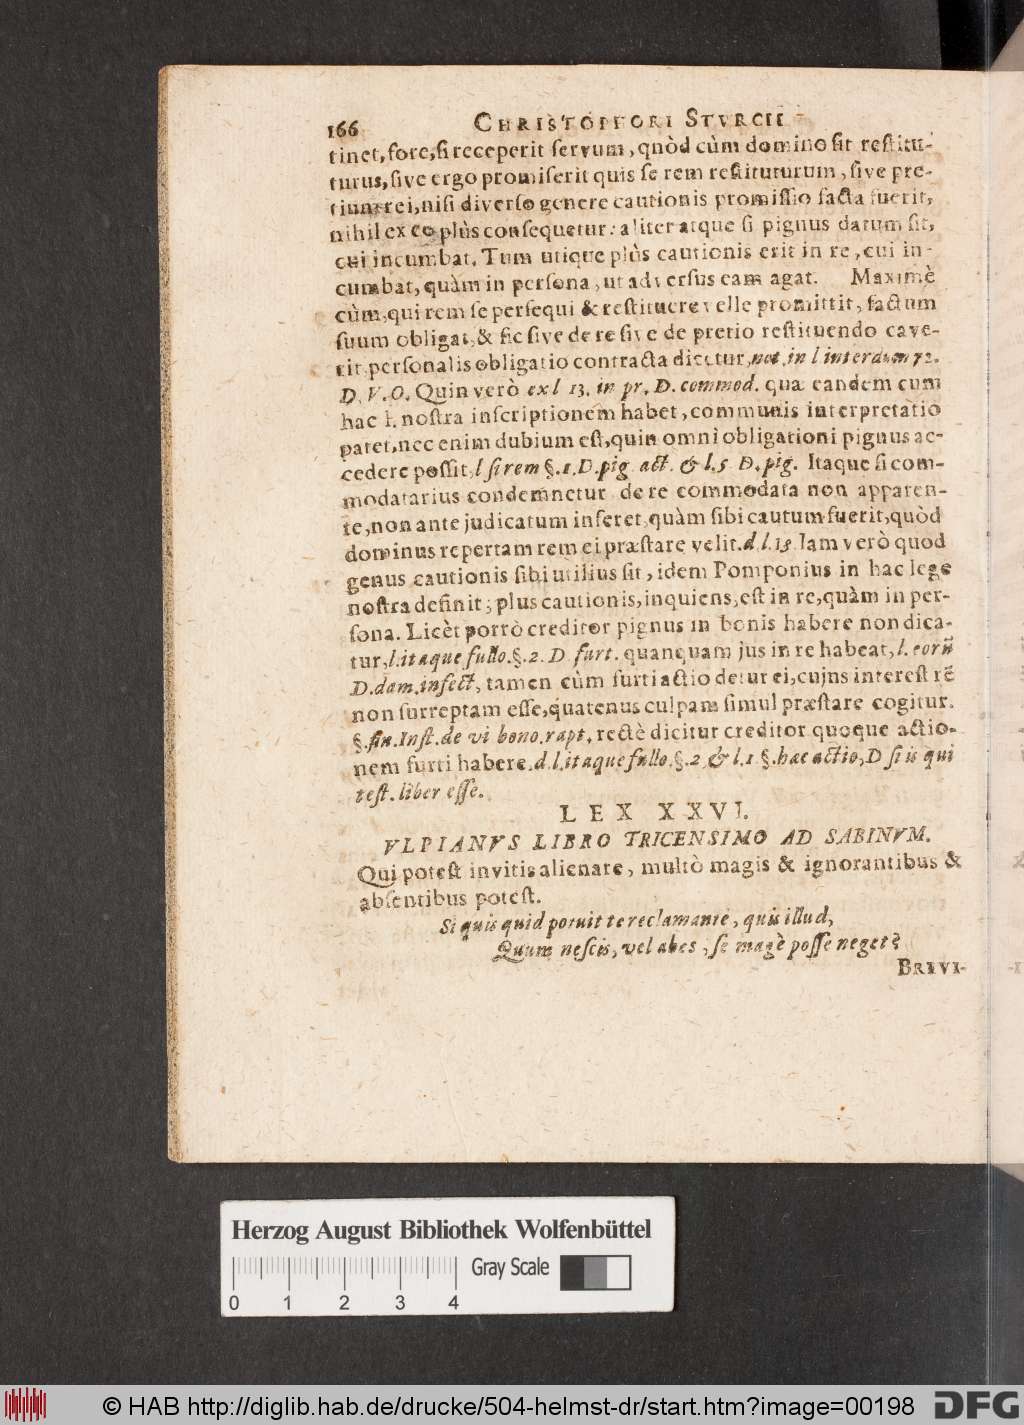 166 CHRISTOPHORI STVRCII
tinet, fore, si receperit servum, quòd cùm domino sit restitu-
turus, sive ergo promiserit quis se rem restituturum, sive pre-
tium rei, nisi diverso genere cautionis promissio facta fuerit,
nihil ex eo plùs consequetur: aliter atque si pignus datum sit,
cui incumbat. Tum utique plùs cautionis erit in re, cui in-
cumbat, quàm in persona, ut adversus eam agat. Maximè
cùm, qui rem se persequi & restituere velle promittit, factum
suum obligat, & sic sive de re sive de pretio restituendo cave-
rit personalis obligatio contracta dicetur, not. in l interdum 72.
D. V. O. Quin verò ex l 13. in pr. D. commod. quæ eandem cum
hac l. nostra inscriptionem habet, communis interpretatio
patet, nec enim dubium est, quin omni obligationi pignus ac-
cedere possit, l si rem §. 1. D. pig act. & l. 5 D. pig. Itaque si com-
modatarius condemnetur de re commodata non apparen-
te, non ante judicatum inferet, quàm sibi cautum fuerit, quòd
dominus repertam rem ei præstare velit. d. l. 13. Iam verò quod
genus cautionis sibi utilius sit, idem Pomponius in hac lege
nostra definit; plus cautionis, inquiens, est in re, quàm in per-
sona. Licèt porrò creditor pignus in bonis habere non dica-
tur, l. itaque fullo. §. 2. D furt. quanquam jus in re habeat, l. eorũ
D. dam. infect, tamen cùm furti actio detur ei, cujus interest rẽ
non surreptam esse, quatenus culpam simul præstare cogitur.
§. fin. Inst. de vi bono. rapt. rectè dicitur creditor quoque actio-
nem furti habere. d. l. itaque fullo. §. 2 & l. 1 §. hæc actio, D si is qui
test. liber esse.
LEX XXVI.
VLPIANVS LIBRO TRICENSIMO AD SABINVM.
Qui potest invitis alienare, multò magis & ignorantibus &
absentibus potest.
Si quis quid potuit te reclamante, quis illud,
Quum nescis, vel abes, se magè posse neget?
BREVI-
Herzog August Bibliothek Wolfenbüttel
Gray Scale
0 1 2 3 4
© HAB http://diglib.hab.de/drucke/504-helmst-dr/start.htm?image=00198 DFG